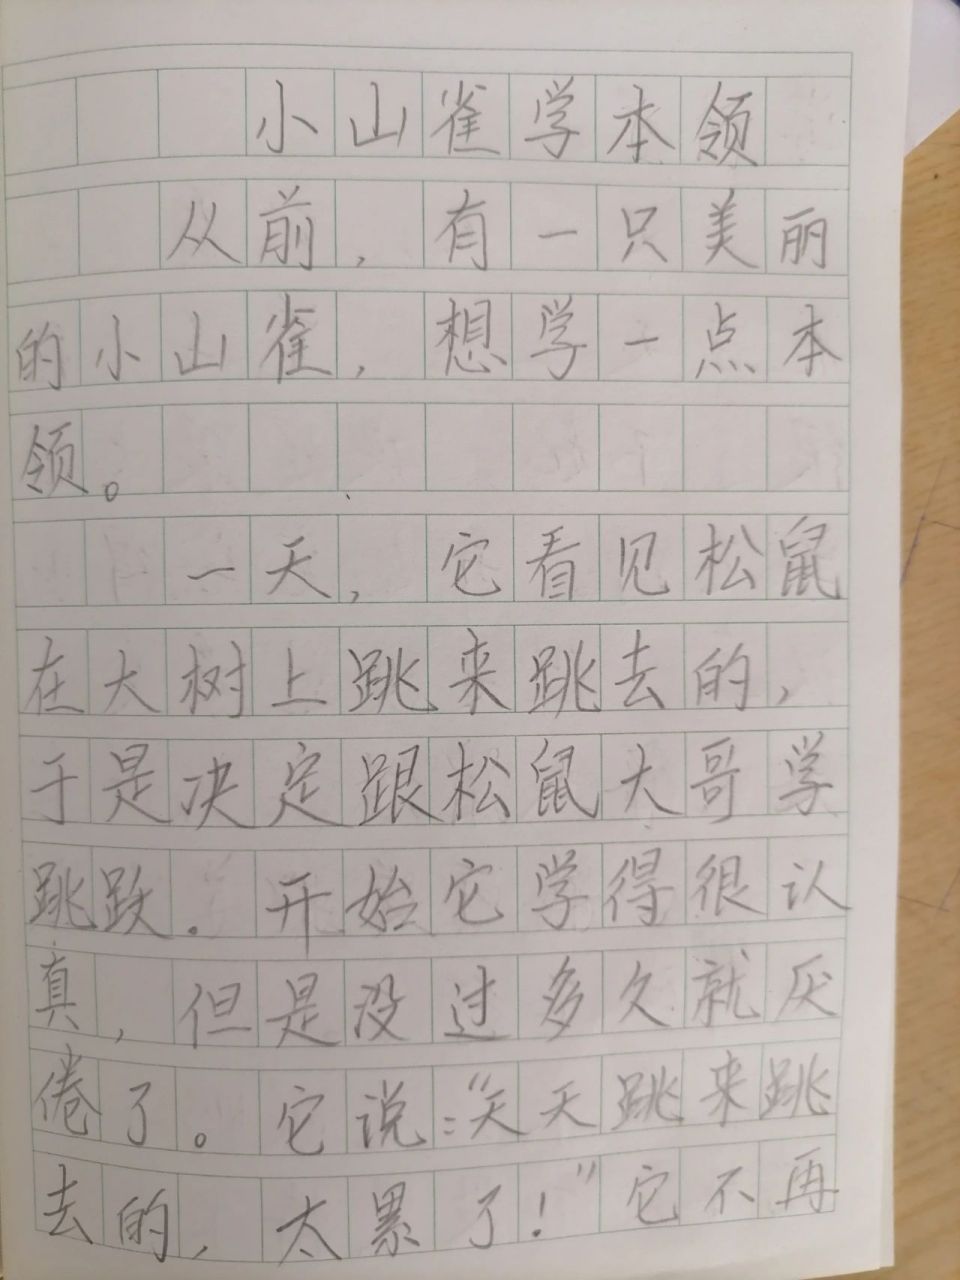 小山雀学本领
从前，有一只美丽
的小山雀，想学一点本
领。
一天，它看见松鼠
在大树上跳来跳去的，
于是决定跟松鼠大哥学
跳跃．开始它学得很认
真，但是没过多久就厌
倦了。它说：“天天跳来跳
去的，太累了！”它不再